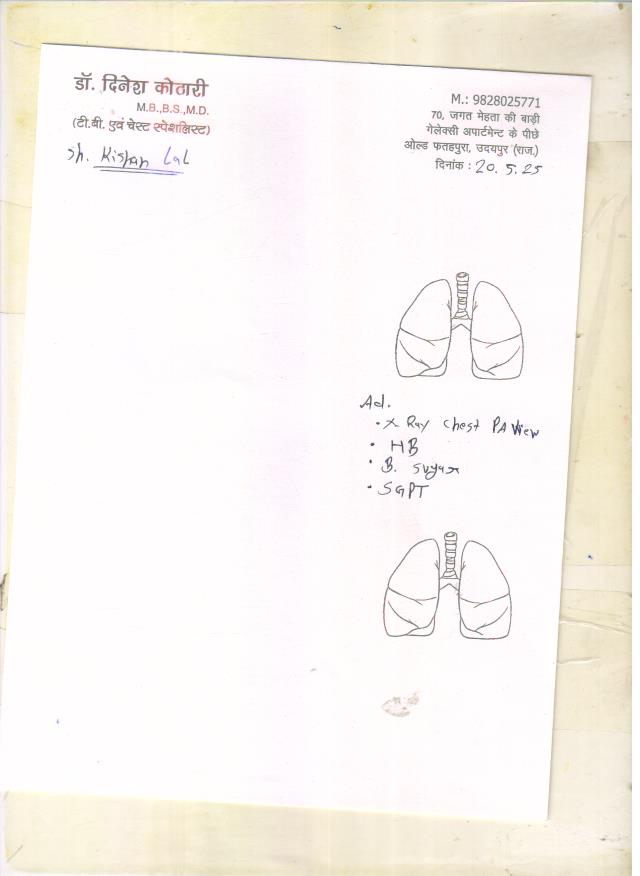 डॉ. दिनेश कोठारी
M.B.,B.S.,M.D.
(टी.बी. एवं चेस्ट स्पेशलिस्ट)
Sh. Kishan Lal
M.: 9828025771
70, जगत मेहता की बाड़ी
गेलेक्सी अपार्टमेन्ट के पीछे
ओल्ड फतहपुरा, उदयपुर (राज.)
दिनांक : 20.5.25
Ad.
• X Ray Chest PA View
• HB
• B. Sugar
• SGPT